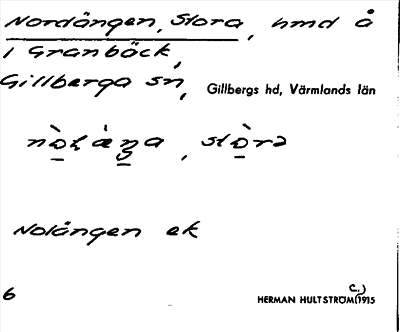 Nordängen, Stora, hmd å
i Granbäck,
Gillberga sn, Gillbergs hd, Värmlands län
Nolängen ek
6 HERMAN HULTSTRÖM (C.) 1915